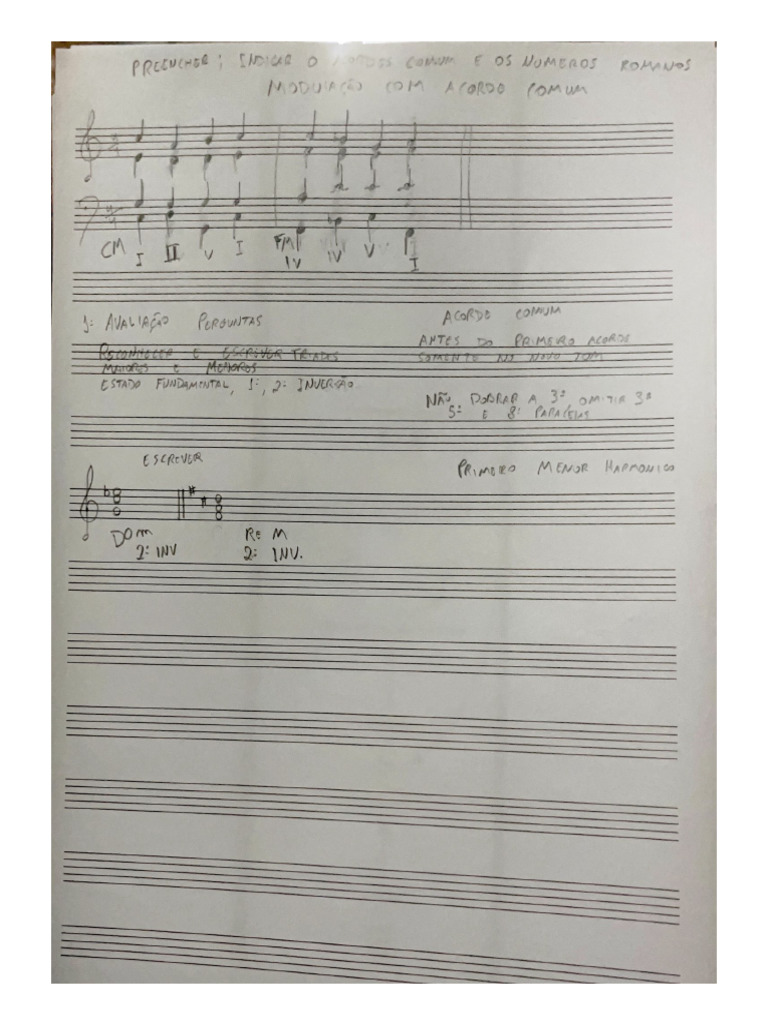 PREENCHER; INDICAR O ACORDES COMUM E OS NUMEROS ROMANOS
MODULAÇÃO COM ACORDO COMUM
CM I II V I FM IV IV V I
1ª AVALIAÇÃO PERGUNTAS
RECONHECER E ESCREVER TRIADES
MAIORES E MENORES
ESTADO FUNDAMENTAL, 1ª, 2ª INVERSÃO
ACORDO COMUM
ANTES DO PRIMEIRO ACORDE
SOMENTE NO NOVO TOM
NÃO DOBRAR A 3ª OMITIR 3ª
5ª E 8ª PARALELAS
ESCREVER
PRIMEIRO MENOR HARMONICO
DO m RE M
2ª INV 2ª INV.